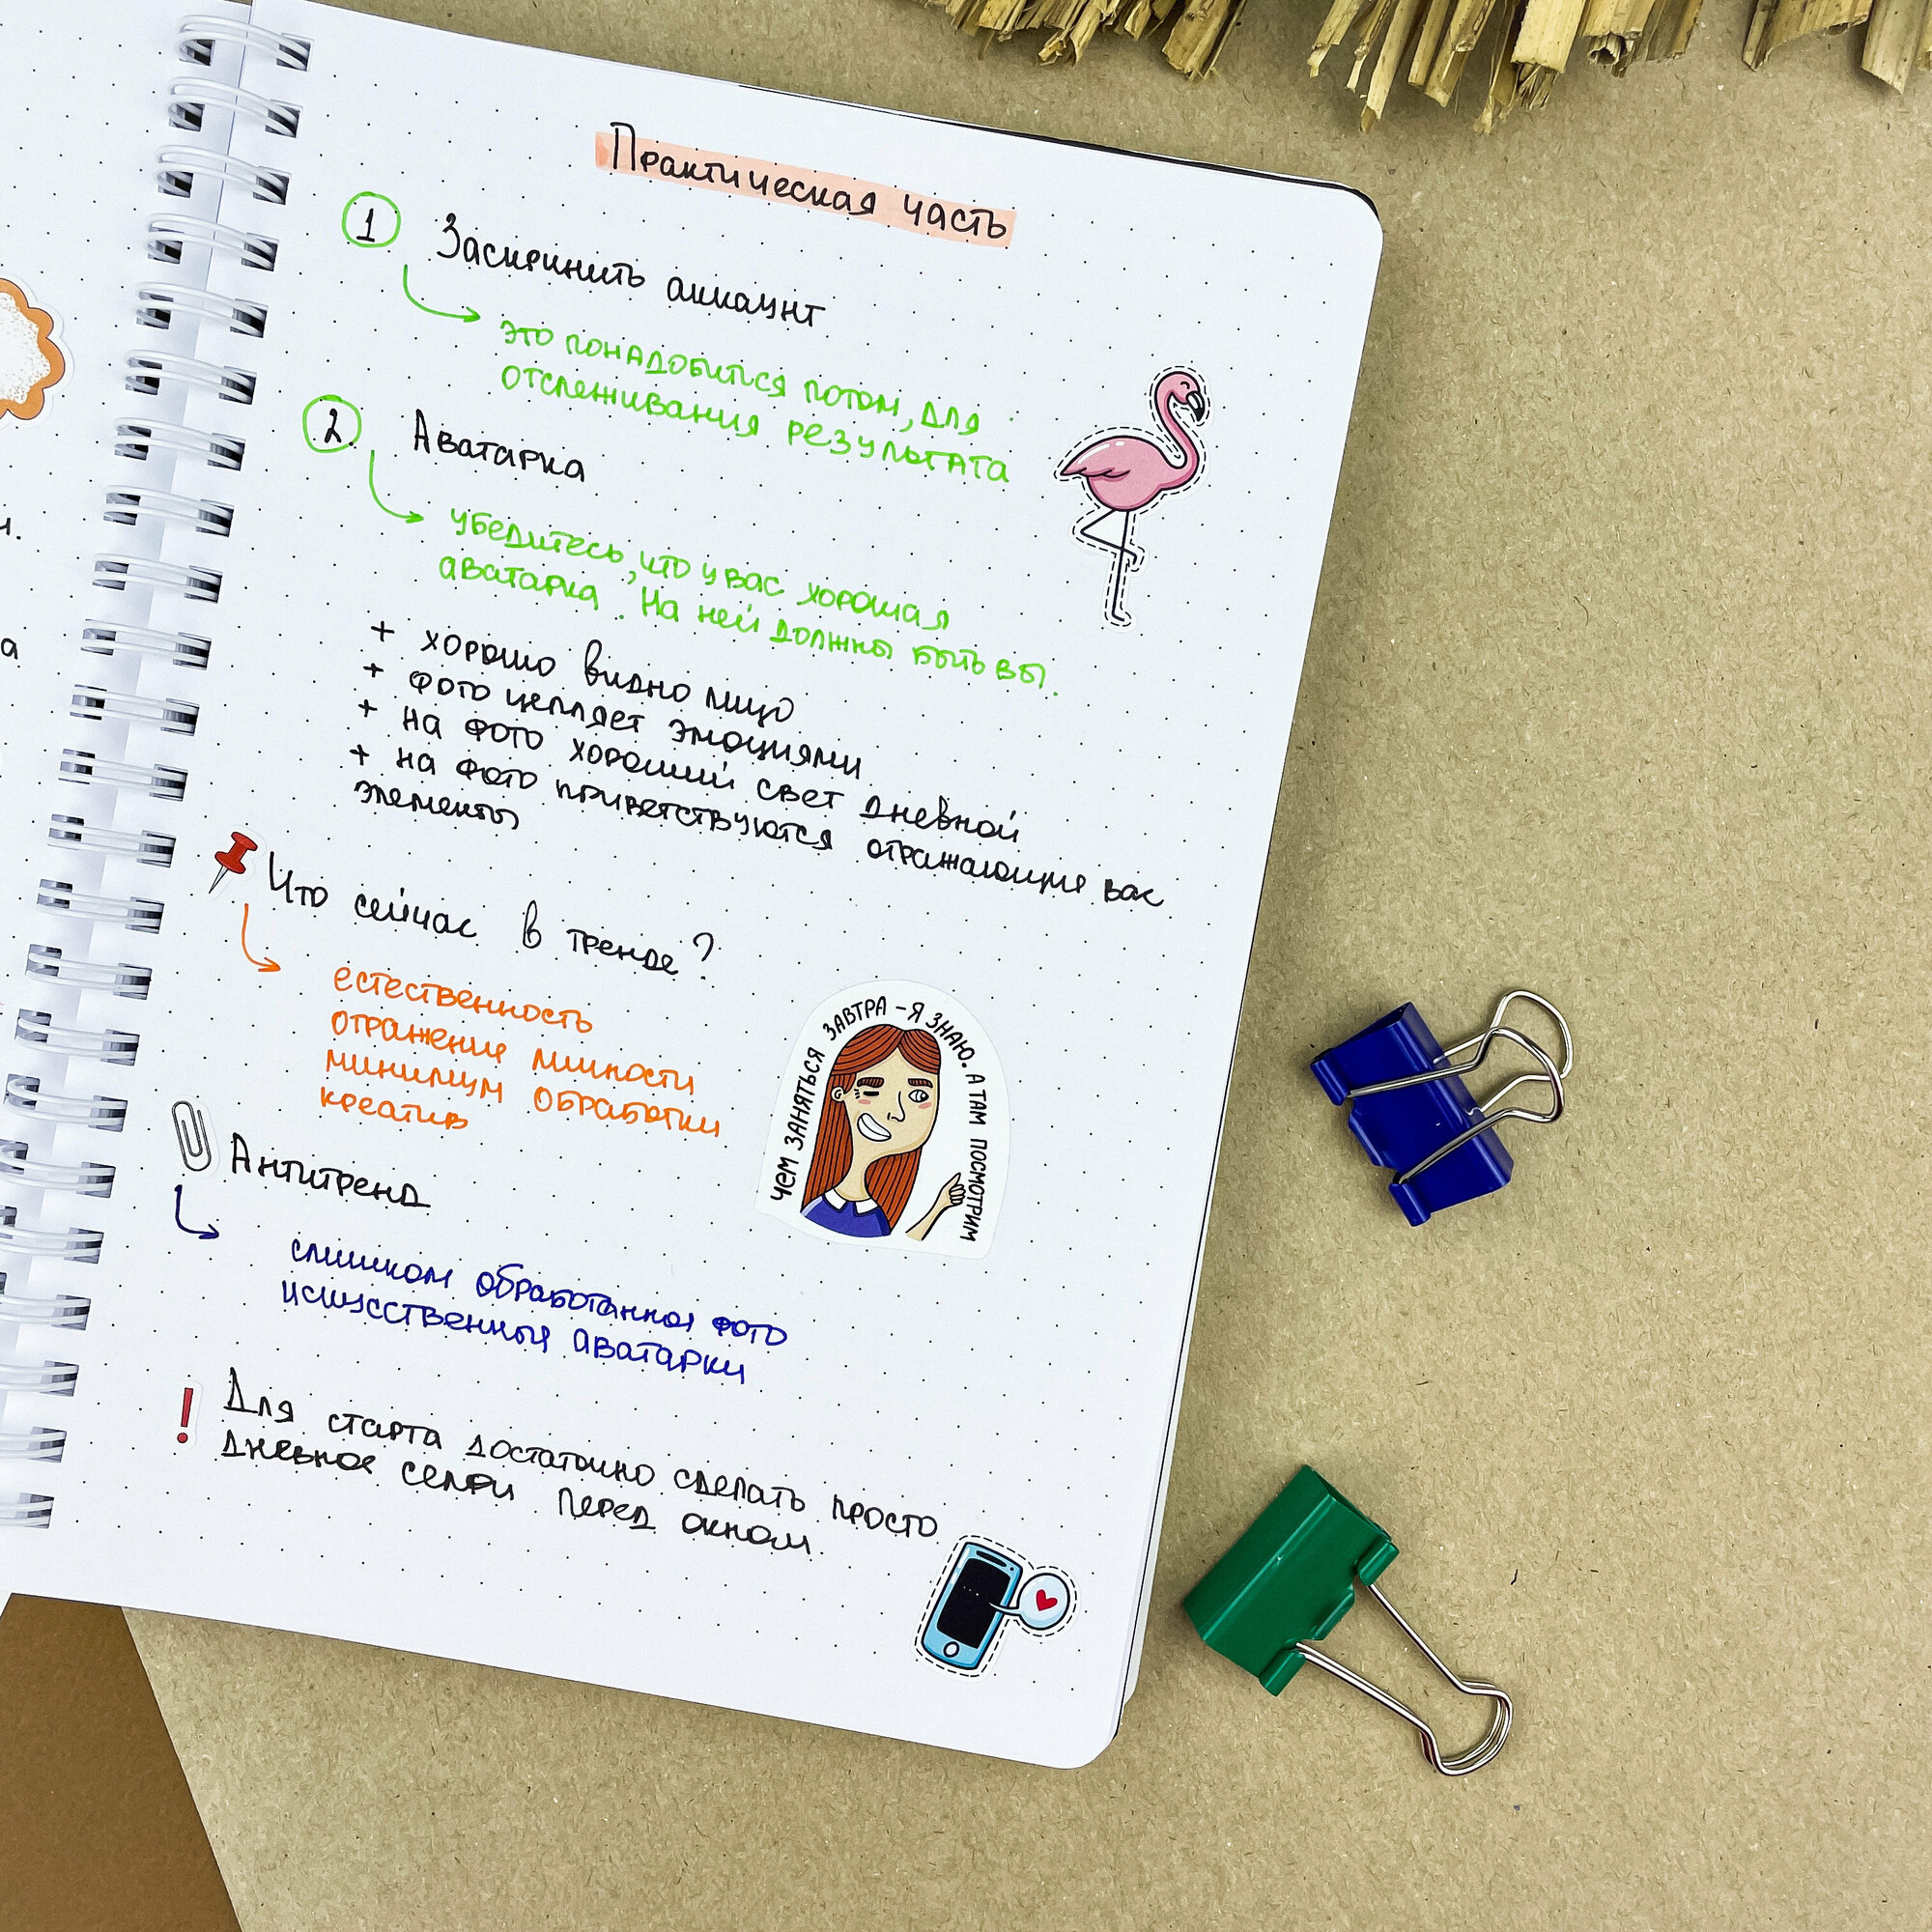 Практическая часть
1 Заскринить аккаунт
это понадобится потом, для
отслеживания результата
2 Аватарка
убедитесь, что у вас хорошая
аватарка. На ней должны быть вы.
+ хорошо видно лицо
+ фото цепляет эмоциями
+ на фото хороший свет дневной
+ на фото приветствуются отражающие вас
элементы
Что сейчас в тренде?
естественность
отражение личности
минимум обработки
креатив
ЧЕМ ЗАНЯТЬСЯ ЗАВТРА - Я ЗНАЮ. А ТАМ ПОСМОТРИМ
Антитренд
слишком обработанное фото
искусственные аватарки
! Для старта достаточно сделать просто
дневное селфи перед окном